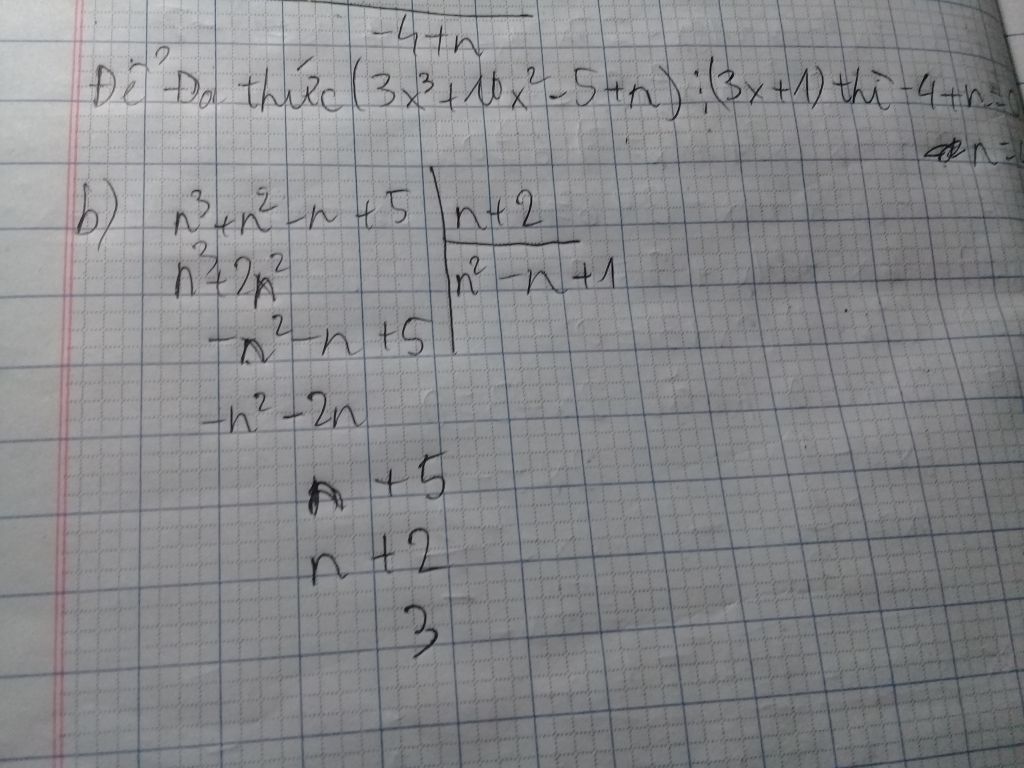 -4+n
Để Đa thức (3x³+10x²-5+n)⋮(3x+1) thì -4+n=0
n=
b) n³+n²-n+5 | n+2
n³+2n² | n²-n+1
-n²-n+5
-n²-2n
n+5
n+2
3